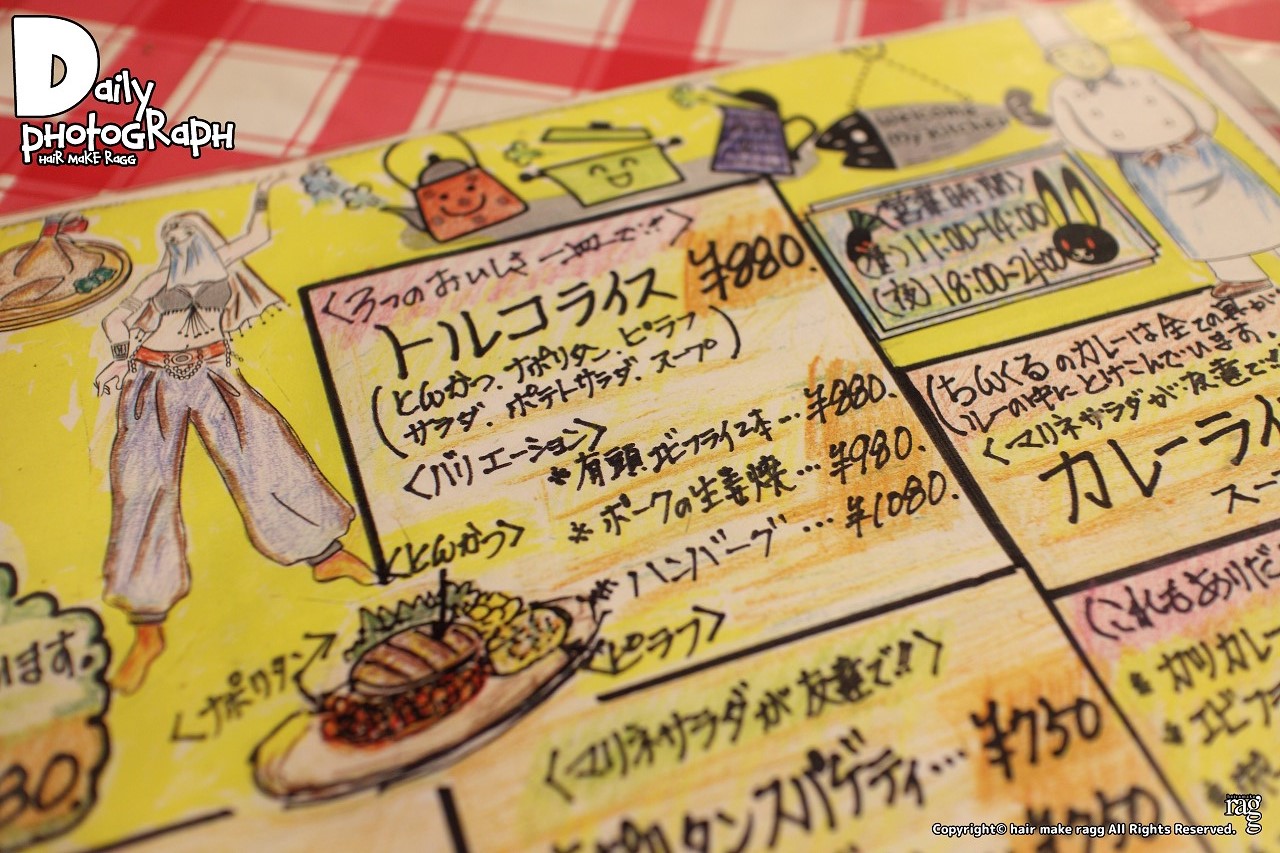 Daily
PHOTOGRAPH
HAIR MAKE RAGG
WELCOME
my KITCHEN
〈営業時間〉
(昼) 11:00~14:00
(夜) 18:00~21:00
〈3つのおいしさ一皿でさ〉
トルコライス ¥880.
(とんかつ、ナポリタン、ピラフ
サラダ、ポテトサラダ、スープ)
〈バリエーション〉
*有頭エビフライ2本…¥880.
*ポークの生姜焼…¥980.
*ハンバーグ…¥1080.
〈とんかつ〉
〈ピラフ〉
〈ナポリタン〉
(ちんくるのカレーは全ての具が
ルーの中にとけこんでいます。
〈マリネサラダが友達で
カレーライ
スー
(これもありだ
*カツカレー
*エビフ
〈マリネサラダが友達で!!〉
ポリタンスパゲティ…¥750
ります。
80.
rag
Copyright© hair make ragg All Rights Reserved.